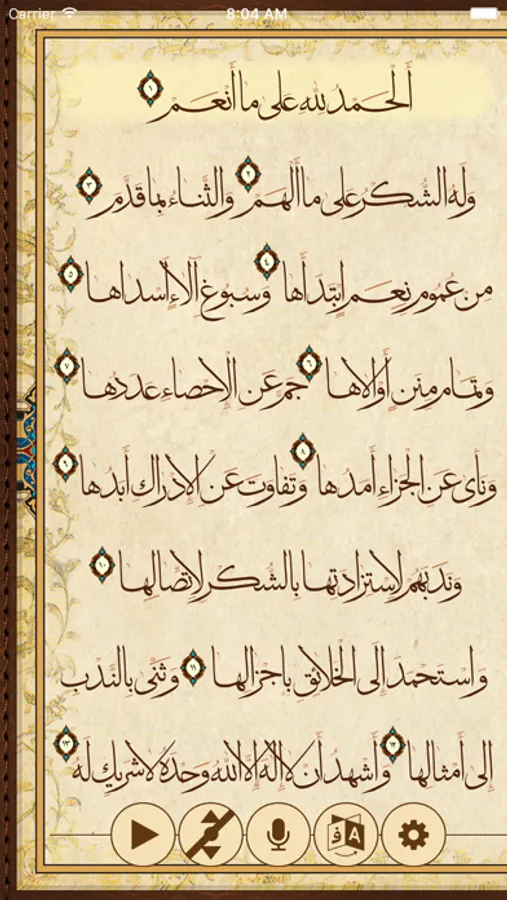 Carrier 8:04 AM
أَلْحَمْدُ لِلّٰهِ عَلى ما أَنْعَمَ ١
وَلَهُ الشُّكْرُ عَلى ما أَلْهَمَ ٢ وَالثَّناءُ بِما قَدَّمَ ٣
مِنْ عُمُومِ نِعَمٍ ابْتَدَأَها ٤ وَسُبُوغِ آلاءٍ أَسْداها ٥
وَتَمامِ مِنَنٍ أَوْلاها ٦ جَمَّ عَنِ الْإِحْصاءِ عَدَدُها ٧
وَنَأى عَنِ الْجَزاءِ أَمَدُها ٨ وَتَفاوَتَ عَنِ الْإِدْراكِ أَبَدُها ٩
وَنَدَبَهُمْ لِاسْتِزادَتِها بِالشُّكْرِ لِاتِّصالِها ١٠
وَاسْتَحْمَدَ إِلَى الْخَلائِقِ بِإِجْزالِها ١١ وَثَنّى بِالنَّدْبِ
إِلى أَمْثالِها ١٢ وَأَشْهَدُ أَنْ لا إِلٰهَ إِلَّا اللّٰهُ وَحْدَهُ لا شَرِيكَ لَهُ ١٣
ف A